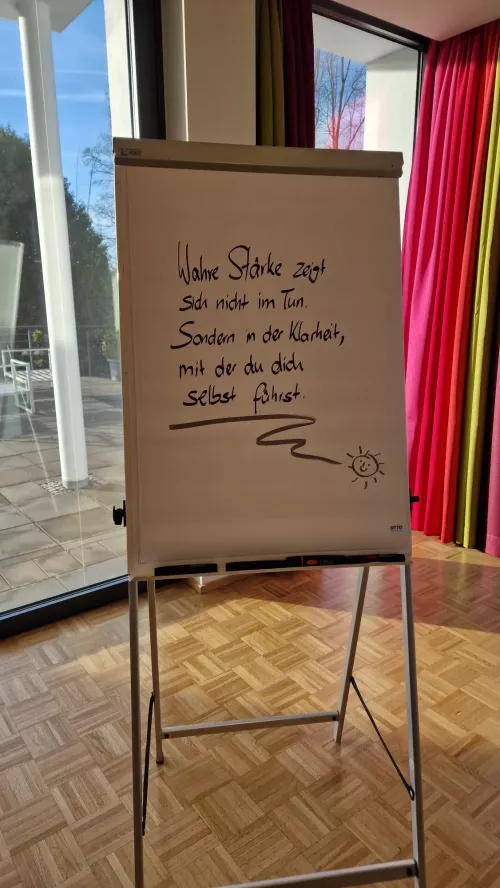 Wahre Stärke zeigt
sich nicht im Tun.
Sondern in der Klarheit,
mit der du dich
selbst führst.